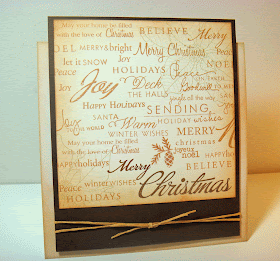 May your home be filled BELIEVE
with the love of Christmas
NOEL MERRY & bright Merry Christmas
let it SNOW Peace
Joy HOLIDAYS
Joy Deck
THE HALLS Goodwill
Happy HOLIDAYS jingle all the way
SENDING
JOY SANTA Warm holiday wishes
WORLD WINTER WISHES MERRY
May your home be filled christmas
with the love of Christmas joyeux
noël BELIEVE
HAPPY holidays Merry
Peace winter wishes Christmas
HOLIDAYS